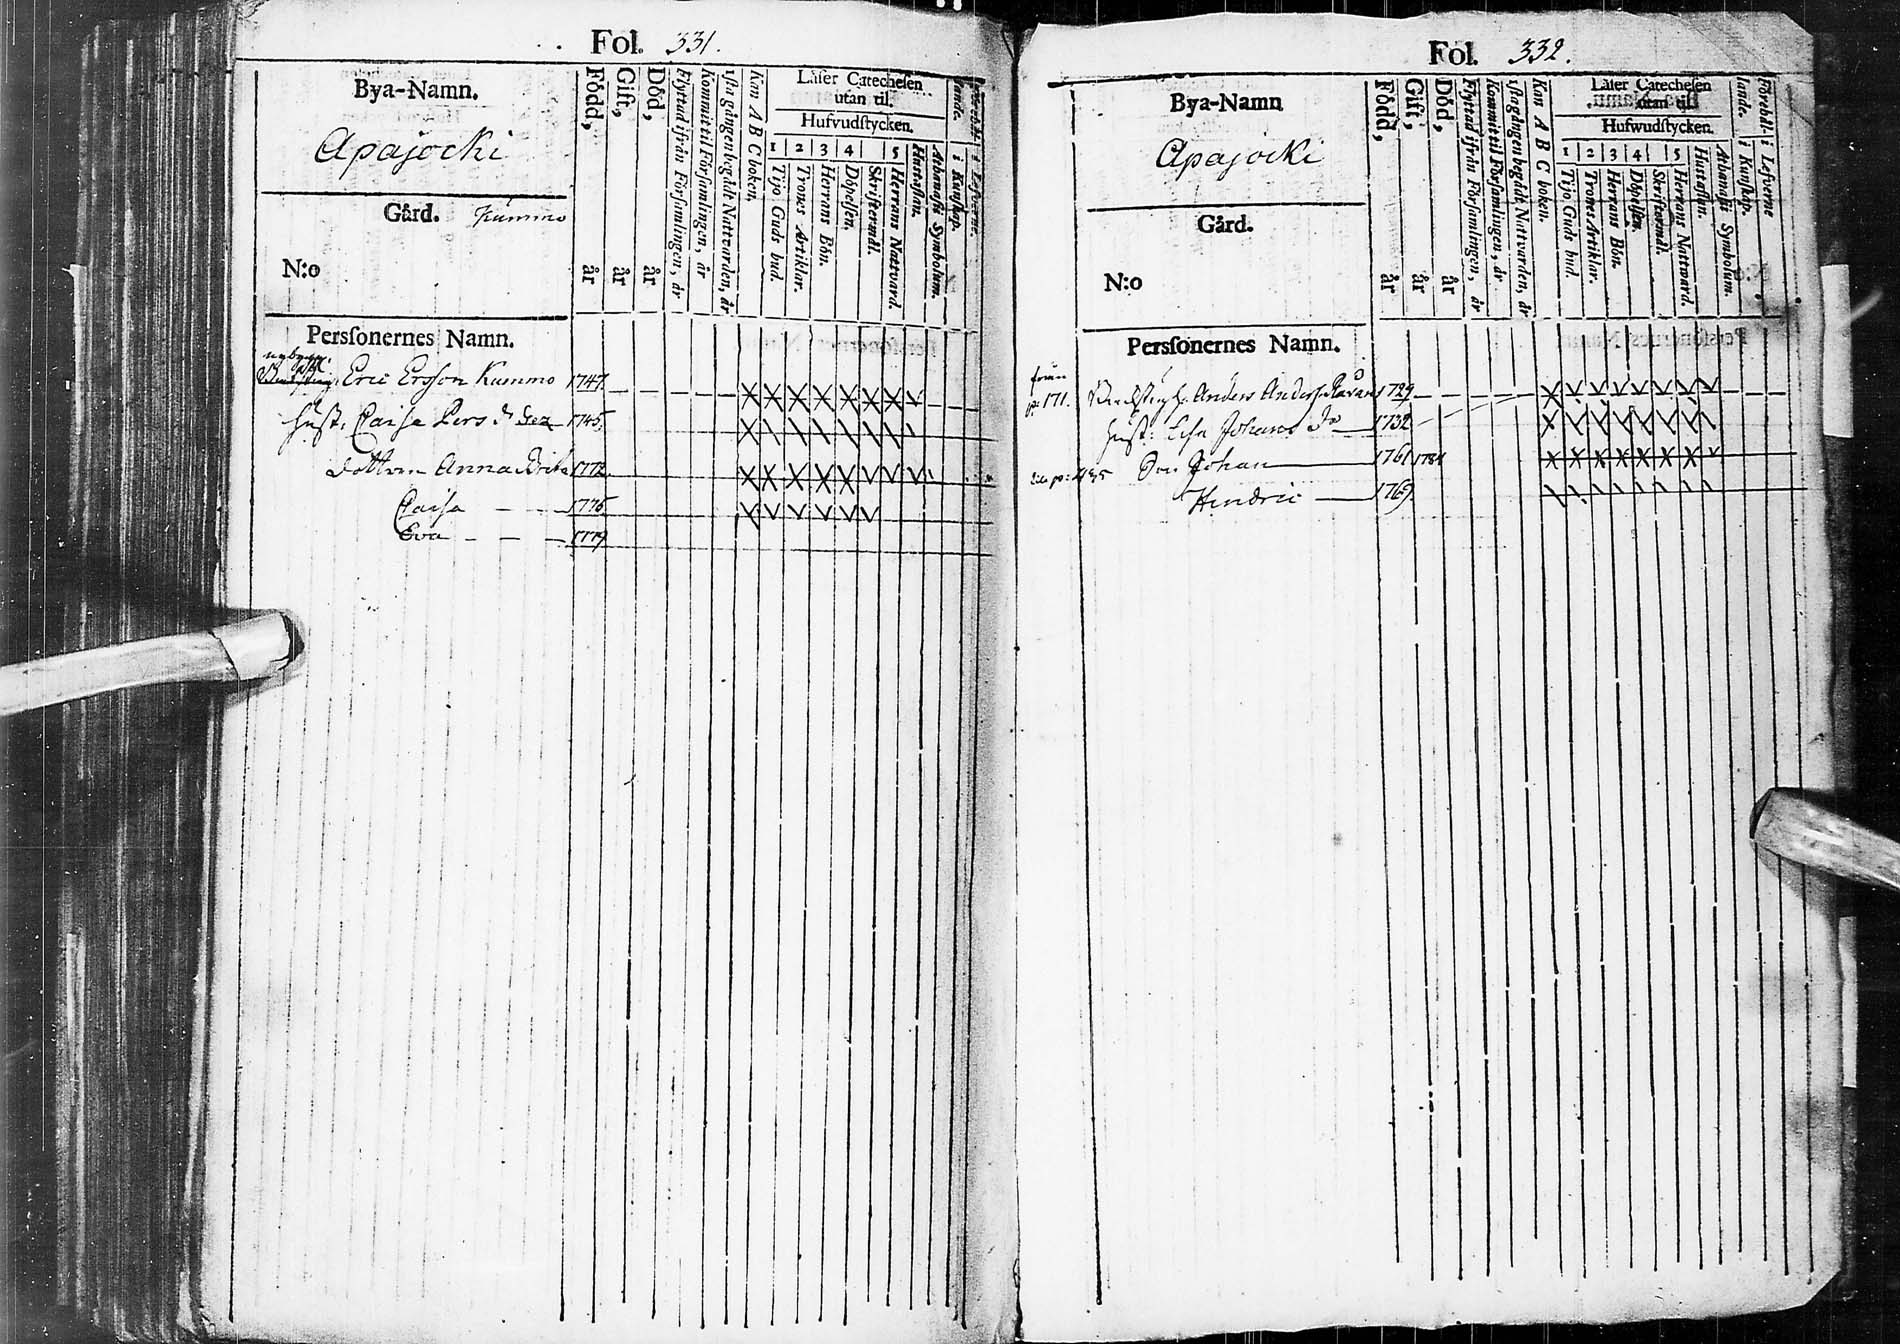 Fol. 331.
Bya-Namn.
Apajocki
Gård. Kummo
N:o
Född, år
Gift, år
Död, år
Flyttad ifrån Församlingen, år
Kommit til Församlingen, år
1sta gången begådt Nattvarden, år
Kan A B C boken.
Läser Catechesen
utan til.
Hufvudstycken.
1 2 3 4 5
Tijo Guds bud.
Trones Artiklar.
Herrans Bön.
Döpelsen.
Skriftermål.
Herrans Nattvard.
Hustaflan.
Athanasii Symbolum.
i Kunskap.
Perssonernes Namn.
nybygg.
Eric Ersson Kummo 1747.
Hust. Caisa Pers dr 1745.
Dottren Anna Brita 1772
Caisa 1776
Eva 1779
Fol. 332.
Bya-Namn
Apajocki
Gård.
N:o
Född, år
Gift, år
Död, år
Flyttad ifrån Församlingen, år
Kommit til Församlingen, år
1sta gången begådt Nattvarden, år
Kan A B C boken.
Läser Catechesen
utan til.
Hufwudstycken.
1 2 3 4 5
Tijo Guds bud.
Trones Artiklar.
Herrans Bön.
Döpelsen.
Skriftermål.
Herrans Nattward.
Hustaflan.
Athanasii Symbolum.
Förehållande.
i Kunskap.
i Lefverne
Perssonernes Namn.
från
p: 171. Anders Anders. 1729
Hust: Johans dr 1732
Son Johan 1761 1784
Hindric 1769